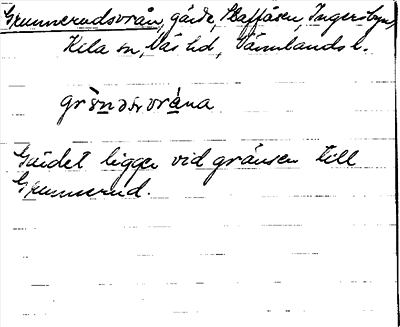 Grunnerudsvrån, gärde, Staffåsen, Ingersbyn,
Kila sn, Näs hd, Värmlands l.
grònəsvrána
Gärdet ligger vid gränsen till
Grunnerud.